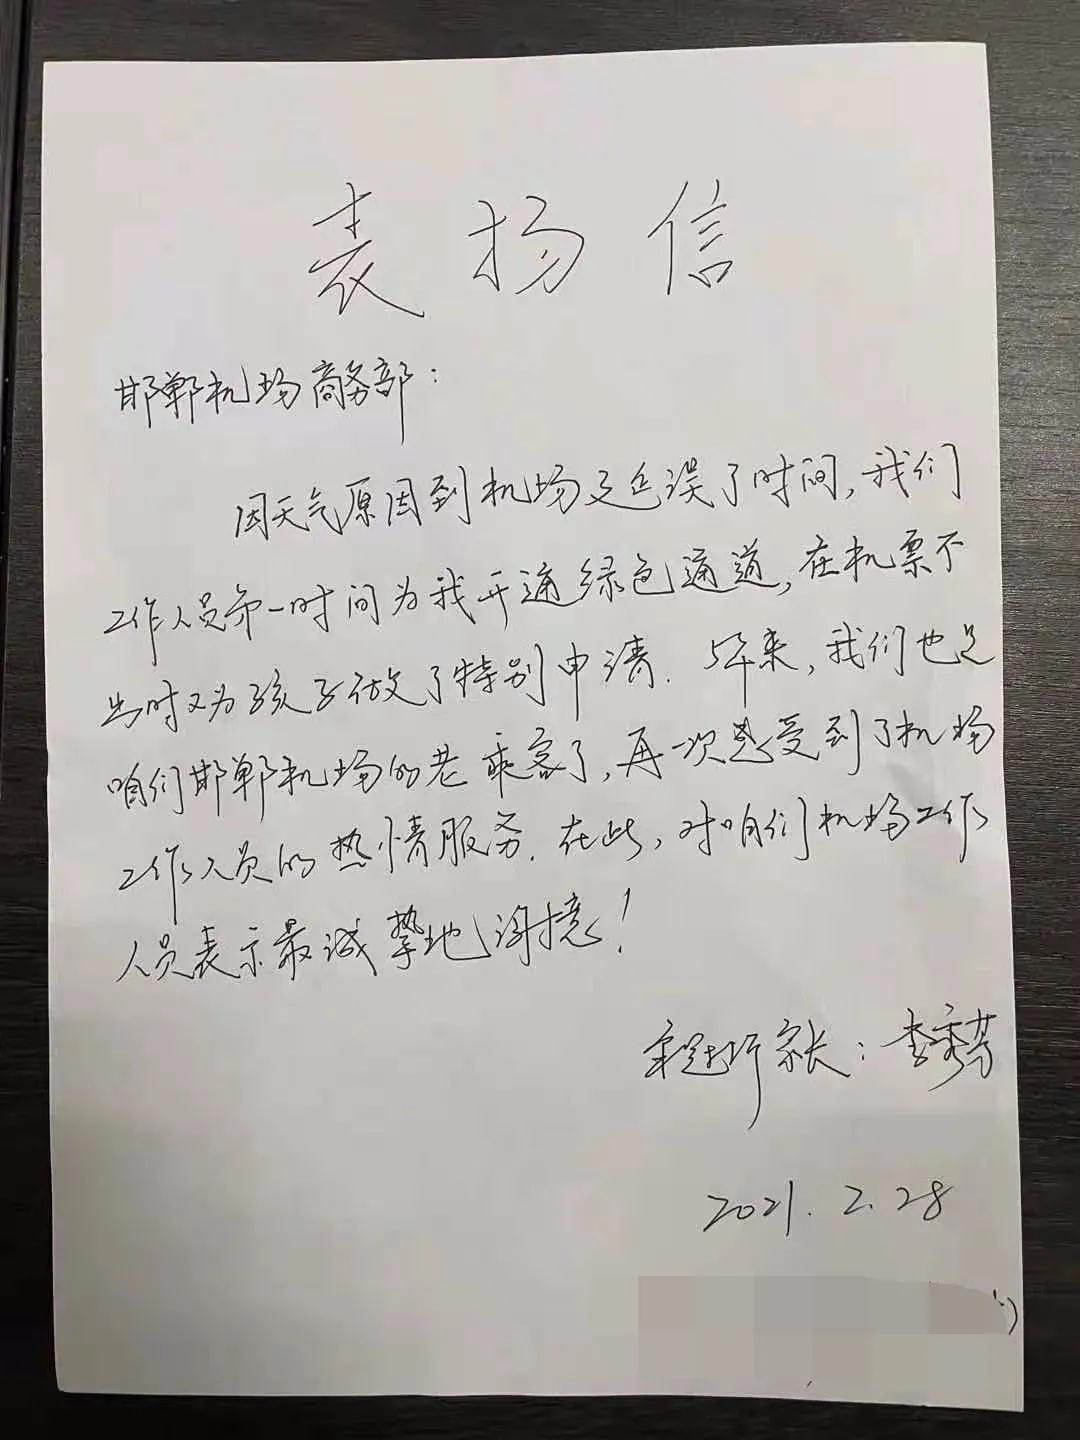 表扬信
邯郸机场商务部：
因天气原因到机场延误了时间，我们
工作人员第一时间为我开通绿色通道，在机票不
出时又为孩子做了特别申请. 5年来，我们也是
咱们邯郸机场的老乘客了，再一次感受到了机场
工作人员的热情服务. 在此，对咱们机场工作
人员表示最诚挚地谢意！
家长：李秀芳
2021.2.28